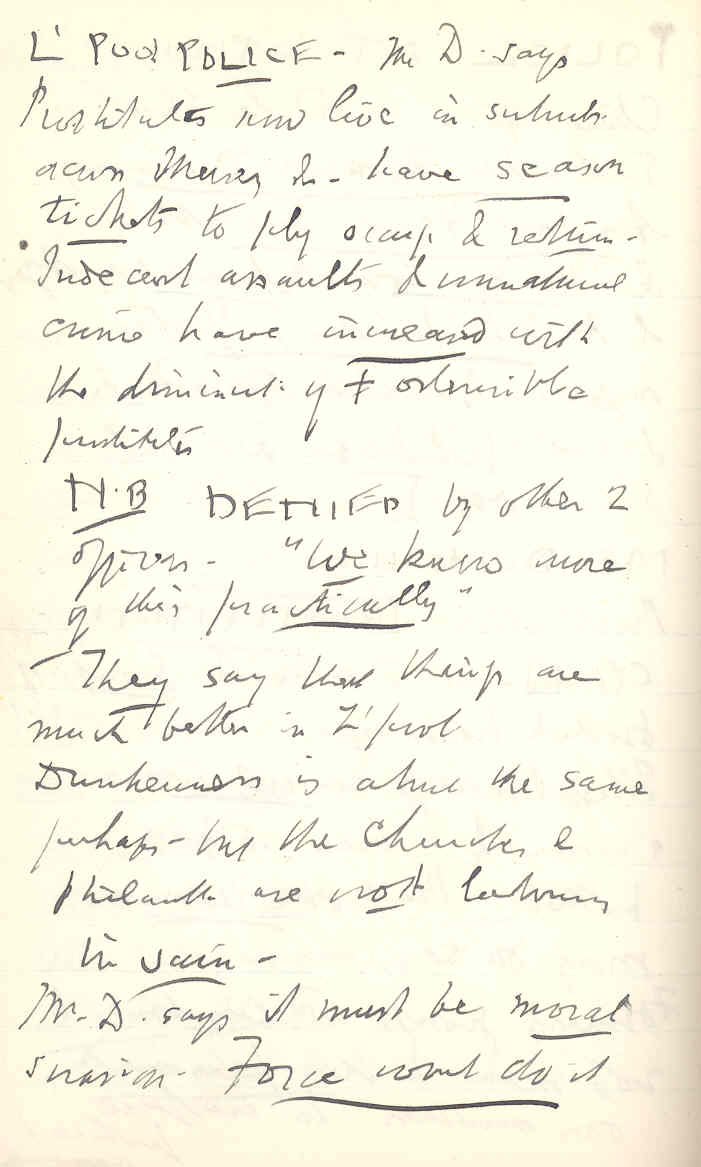 L'POOL POLICE - Mr D. says
Prostitutes now live in suburbs
across Mersey &c - have season
tickets to ply occup. & return -
Indecent assaults & unnatural
crime have increased with
the diminut. of ostensible
prostitutes
N.B DENIED by other 2
officers - "We know more
of this practically"
- They say that things are
much better in L'pool
Drunkenness is about the same
perhaps - but the Churches &
philanth. are not labouring
in vain -
Mr. D. says it must be moral
suasion - Force wont do it